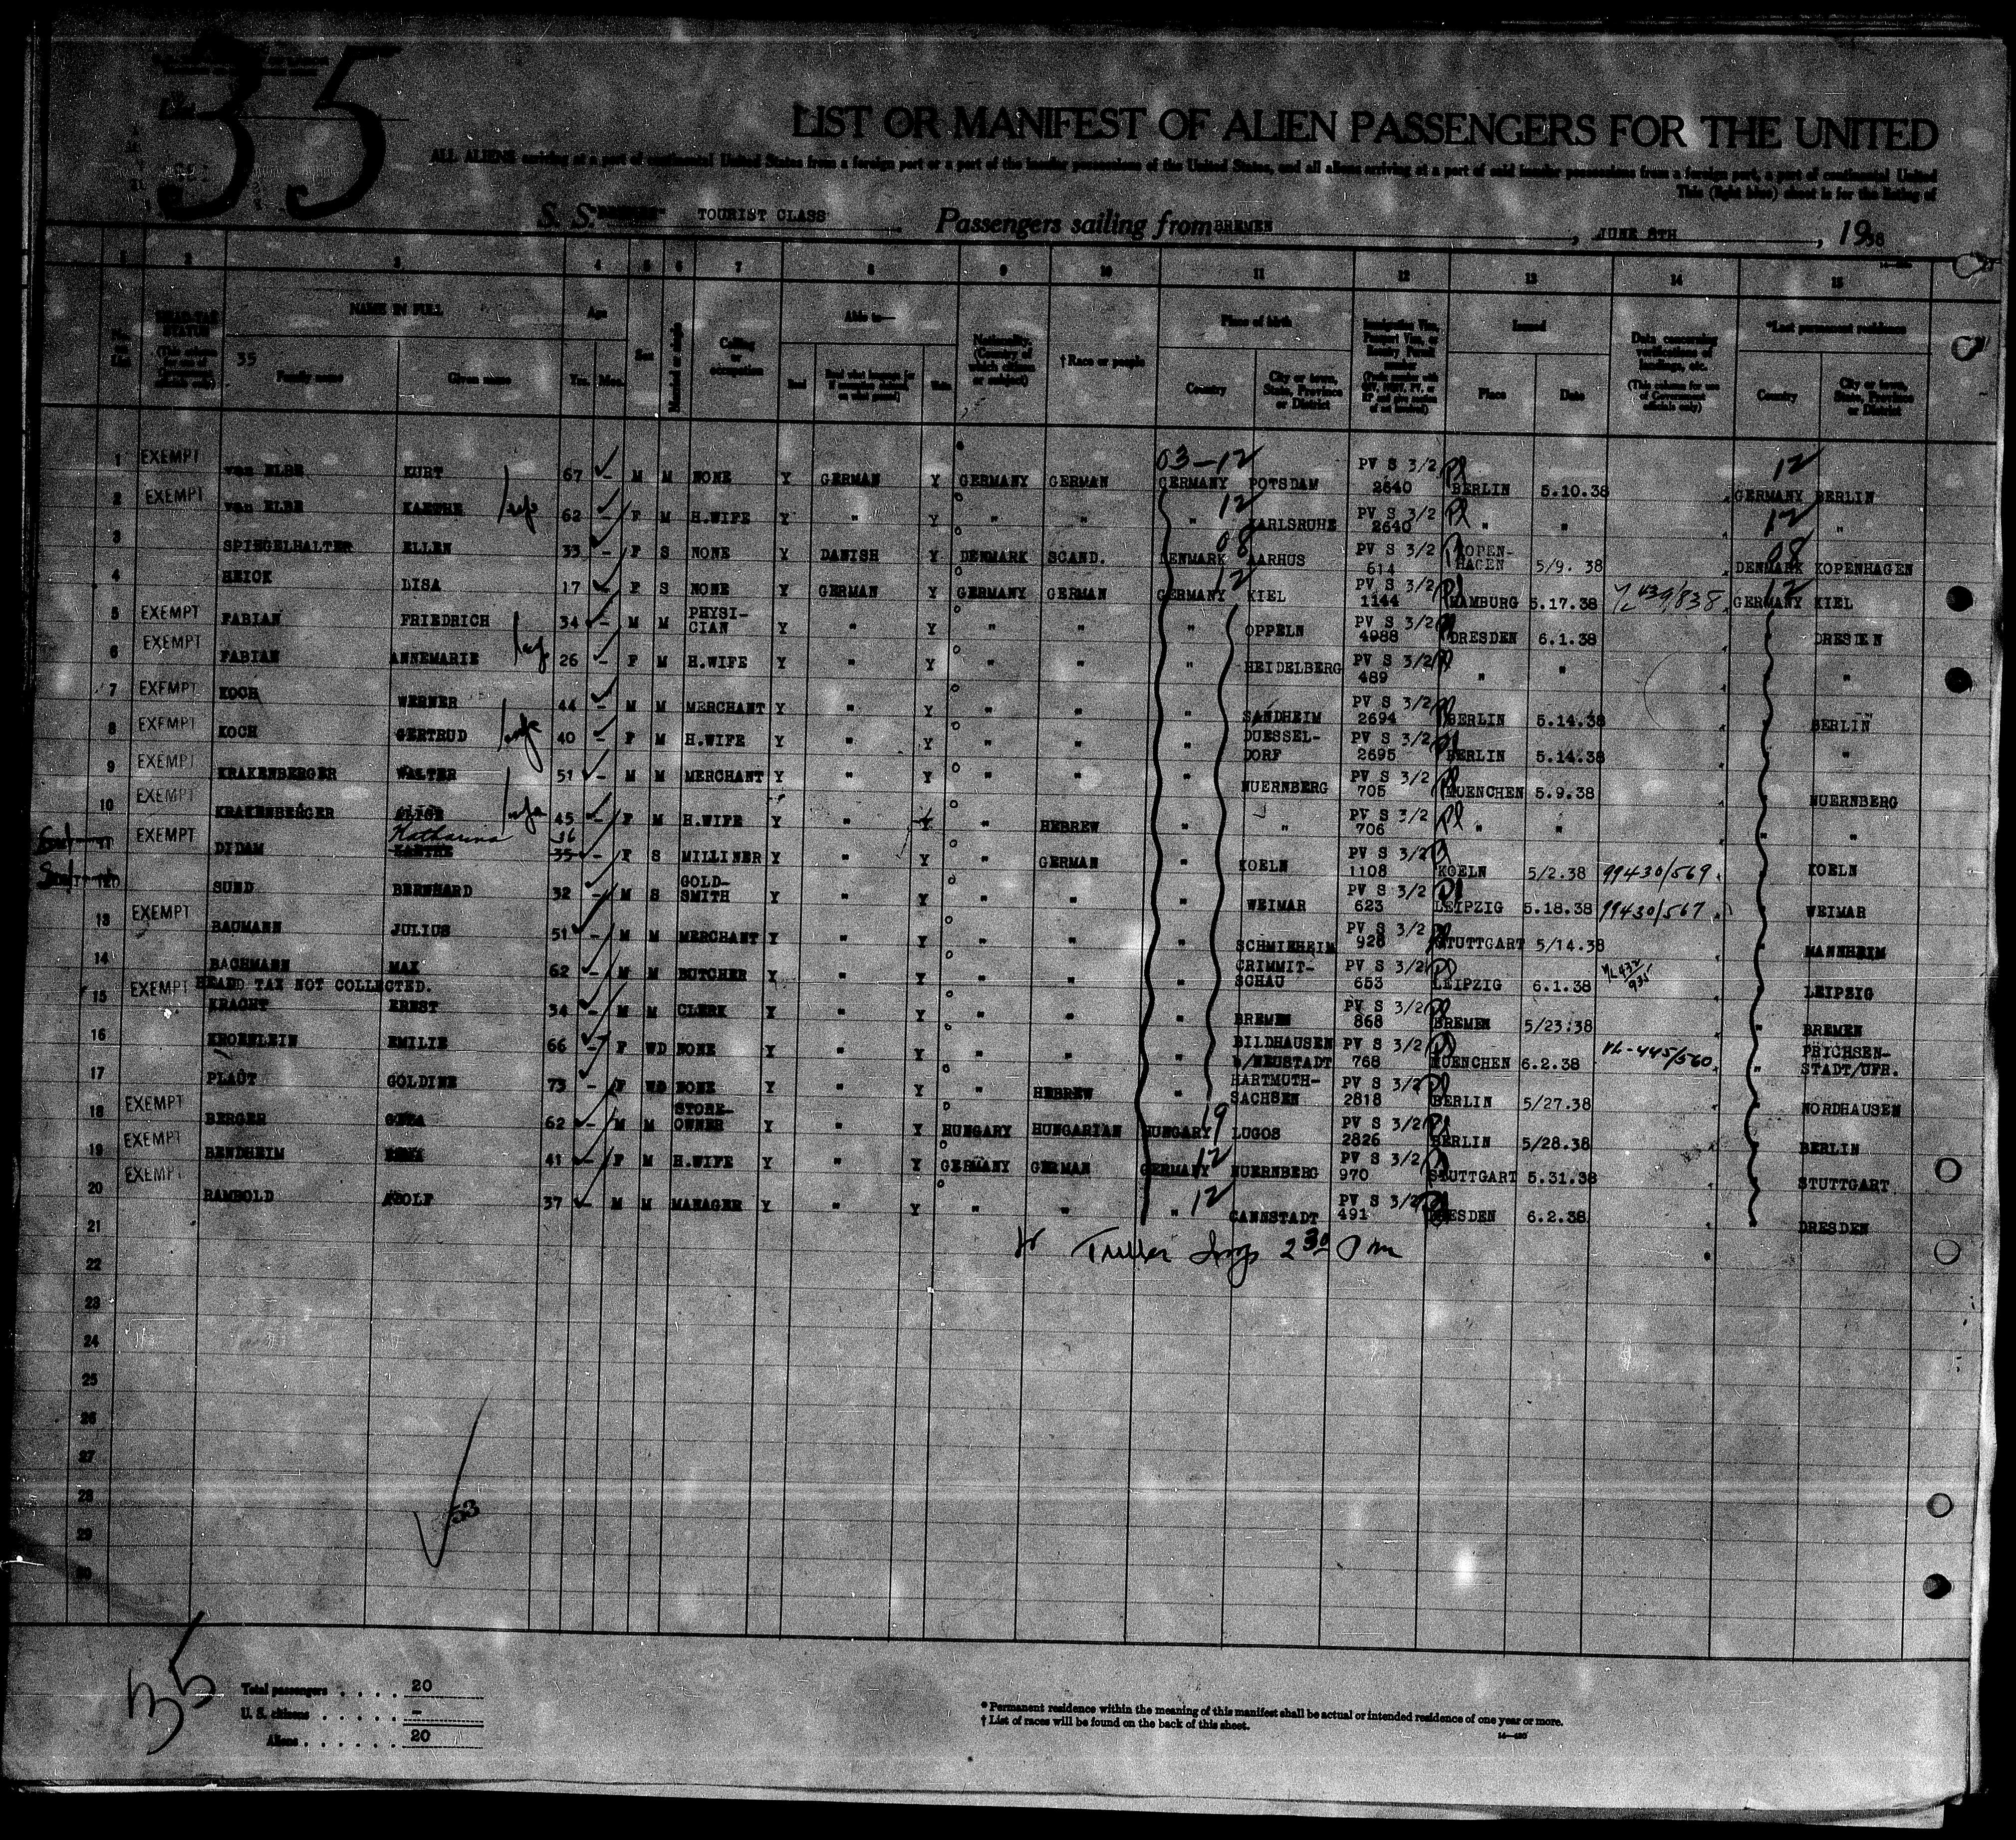 35
LIST OR MANIFEST OF ALIEN PASSENGERS FOR THE UNITED
ALL ALIENS arriving at a port of continental United States from a foreign port or a port of the insular possessions of the United States, and all aliens arriving at a port of said insular possessions from a foreign port, a port of continental United
This (light blue) sheet is for the listing of
S. S. TOURIST CLASS Passengers sailing from BREMEN, JUNE 8TH, 1938
1 2 3 4 5 6 7 8 9 10 11 12 13 14 15
HEAD-TAX STATUS NAME IN FULL Age Sex Married or single Calling or occupation Able to— Nationality. (Country of which citizen or subject) †Race or people Place of birth Issued Data concerning verifications of landings, etc. *Last permanent residence
35 Family name Given name Yrs. Mos. Read Write Country City or town, State, Province or District Place Date (This column for use of Government officials only) Country City or town, State, Province or District
1 EXEMPT von ELBE KURT 67 - M M NONE Y GERMAN Y GERMANY GERMAN 03-12 GERMANY POTSDAM PV S 3/2 2640 BERLIN 5.10.38 12 GERMANY BERLIN
2 EXEMPT von ELBE KAETHE 62 - F M H.WIFE Y " Y " " " 12 KARLSRUHE PV S 3/2 2640 " " 12 "
3 SPIEGELHALTER ELLEN 33 - F S NONE Y DANISH Y DENMARK SCAND. DENMARK 08 AARHUS PV S 3/2 614 KOPENHAGEN 5/9. 38 08 DENMARK KOPENHAGEN
4 HEICK LISA 17 - F S NONE Y GERMAN Y GERMANY GERMAN GERMANY 12 KIEL PV S 3/2 1144 HAMBURG 5.17.38 439/838 12 GERMANY KIEL
5 EXEMPT FABIAN FRIEDRICH 34 - M M PHYSI-CIAN Y " Y " " " OPPELN PV S 3/2 4988 DRESDEN 6.1.38 DRESDEN
6 EXEMPT FABIAN ANNEMARIE 26 - F M H.WIFE Y " Y " " " HEIDELBERG PV S 3/2 489 " " "
7 EXEMPT KOCH WERNER 44 - M M MERCHANT Y " Y " " " SANDHEIM PV S 3/2 2694 BERLIN 5.14.38 BERLIN
8 EXEMPT KOCH GERTRUD 40 - F M H.WIFE Y " Y " " " DUESSEL-DORF PV S 3/2 2695 BERLIN 5.14.38 "
9 EXEMPT KRAKENBERGER WALTER 51 - M M MERCHANT Y " Y " " " NUERNBERG PV S 3/2 705 MUENCHEN 5.9.38 NUERNBERG
10 EXEMPT KRAKENBERGER ALICE 45 - F M H.WIFE Y " Y " HEBREW " " PV S 3/2 706 " " " "
11 EXEMPT DIDAM Katharina KAETHE 36 35 - F S MILLINER Y " Y " GERMAN " KOELN PV S 3/2 1108 KOELN 5/2.38 99430/569 " KOELN
12 SUND BERNHARD 32 - M S GOLD-SMITH Y " Y " " " WEIMAR PV S 3/2 623 LEIPZIG 5.18.38 99430/567 " WEIMAR
13 EXEMPT BAUMANN JULIUS 51 - M M MERCHANT Y " Y " " " SCHMIEHEIM PV S 3/2 928 STUTTGART 5/14.38 " MANNHEIM
14 BACHMANN MAX 62 - M M BUTCHER Y " Y " " " CRIMMIT-SCHAU PV S 3/2 653 LEIPZIG 6.1.38 " LEIPZIG
HEAD TAX NOT COLLECTED.
15 EXEMPT KRACHT ERNST 34 - M M CLERK Y " Y " " " BREMEN PV S 3/2 868 BREMEN 5/23.38 " BREMEN
16 KROENLEIN EMILIE 66 - F WD NONE Y " Y " " " BILDHAUSEN b/NEUSTADT PV S 3/2 768 MUENCHEN 6.2.38 VL-445/560 " PRICHSEN-STADT/UFR.
17 PLAUT GOLDINE 73 - F WD NONE Y " Y " HEBREW " HARTMUTH-SACHSEN PV S 3/2 2818 BERLIN 5/27.38 " NORDHAUSEN
18 EXEMPT BERGER 62 - M M STORE-OWNER Y " Y HUNGARY HUNGARIAN HUNGARY 19 LUGOS PV S 3/2 2826 BERLIN 5/28.38 " BERLIN
19 EXEMPT BENDHEIM 41 - F M H.WIFE Y " Y GERMANY GERMAN GERMANY 12 NUERNBERG PV S 3/2 970 STUTTGART 5.31.38 STUTTGART
20 EXEMPT RAMBOLD ADOLF 37 - M M MANAGER Y " Y " " " 12 CANNSTADT PV S 3/2 491 DRESDEN 6.2.38 DRESDEN
21
22
23
24
25
26
27
28
29
30
53
35
Total passengers . . . . 20
U. S. citizens . . . . . -
Aliens . . . . . . 20
* Permanent residence within the meaning of this manifest shall be actual or intended residence of one year or more.
† List of races will be found on the back of this sheet.